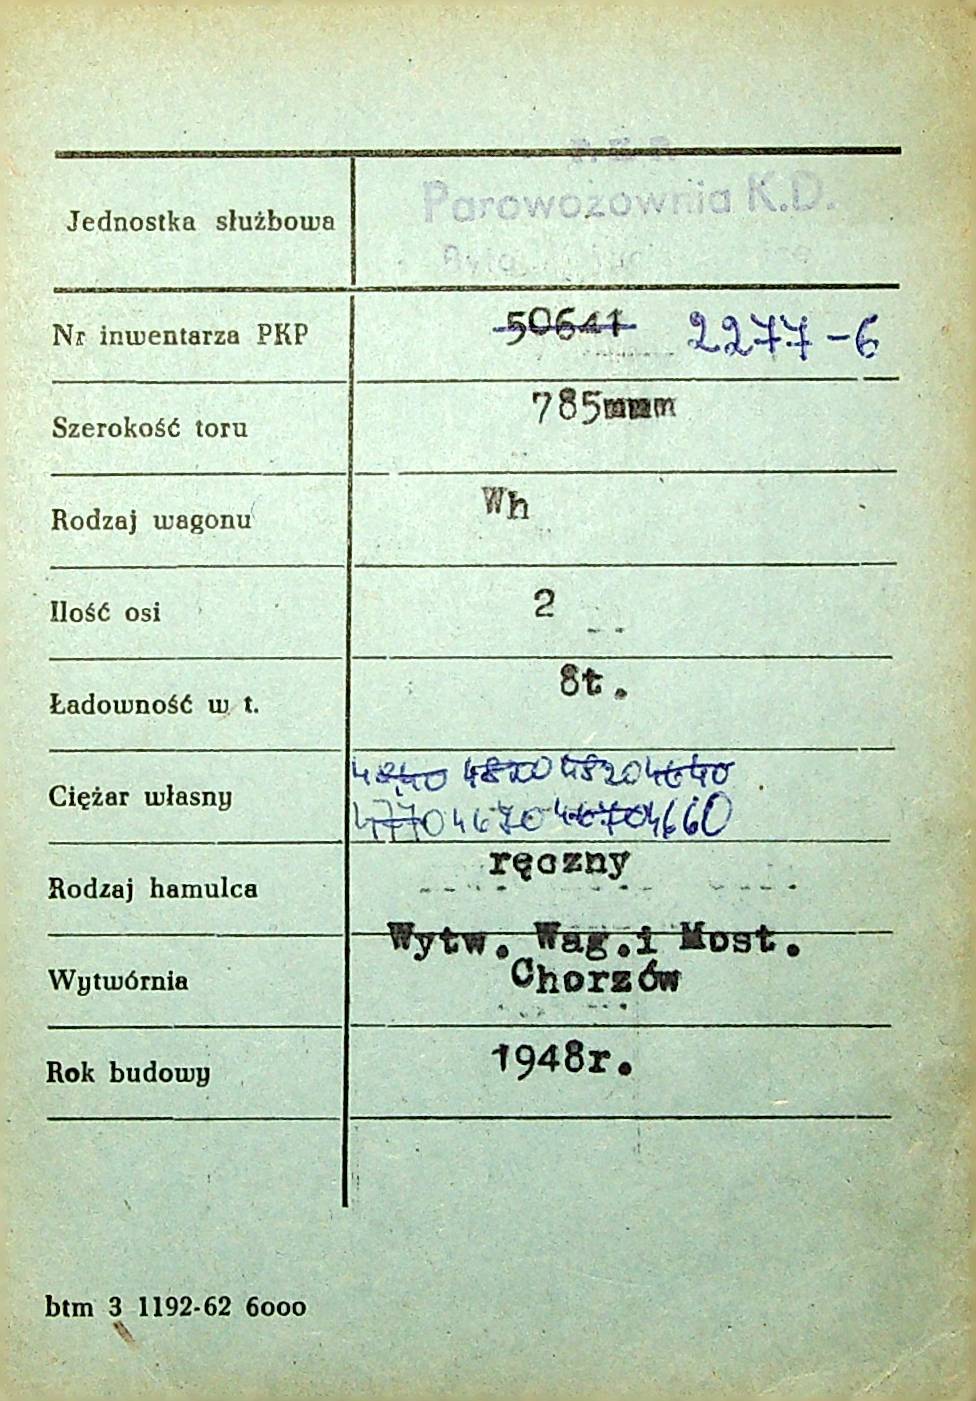 P.K.P.
Parowozownia K.D.
Jednostka służbowa
Nr inwentarza PKP 50641 2277-6
Szerokość toru 785mmm
Rodzaj wagonu Wh
Ilość osi 2
Ładowność w t. 8t.
Ciężar własny 4840 4820 4820 4640
4770 4670 4670 4660
Rodzaj hamulca ręczny
Wytw. Wag.i Most.
Wytwórnia Chorzów
Rok budowy 1948r.
btm 3 1192-62 6ooo